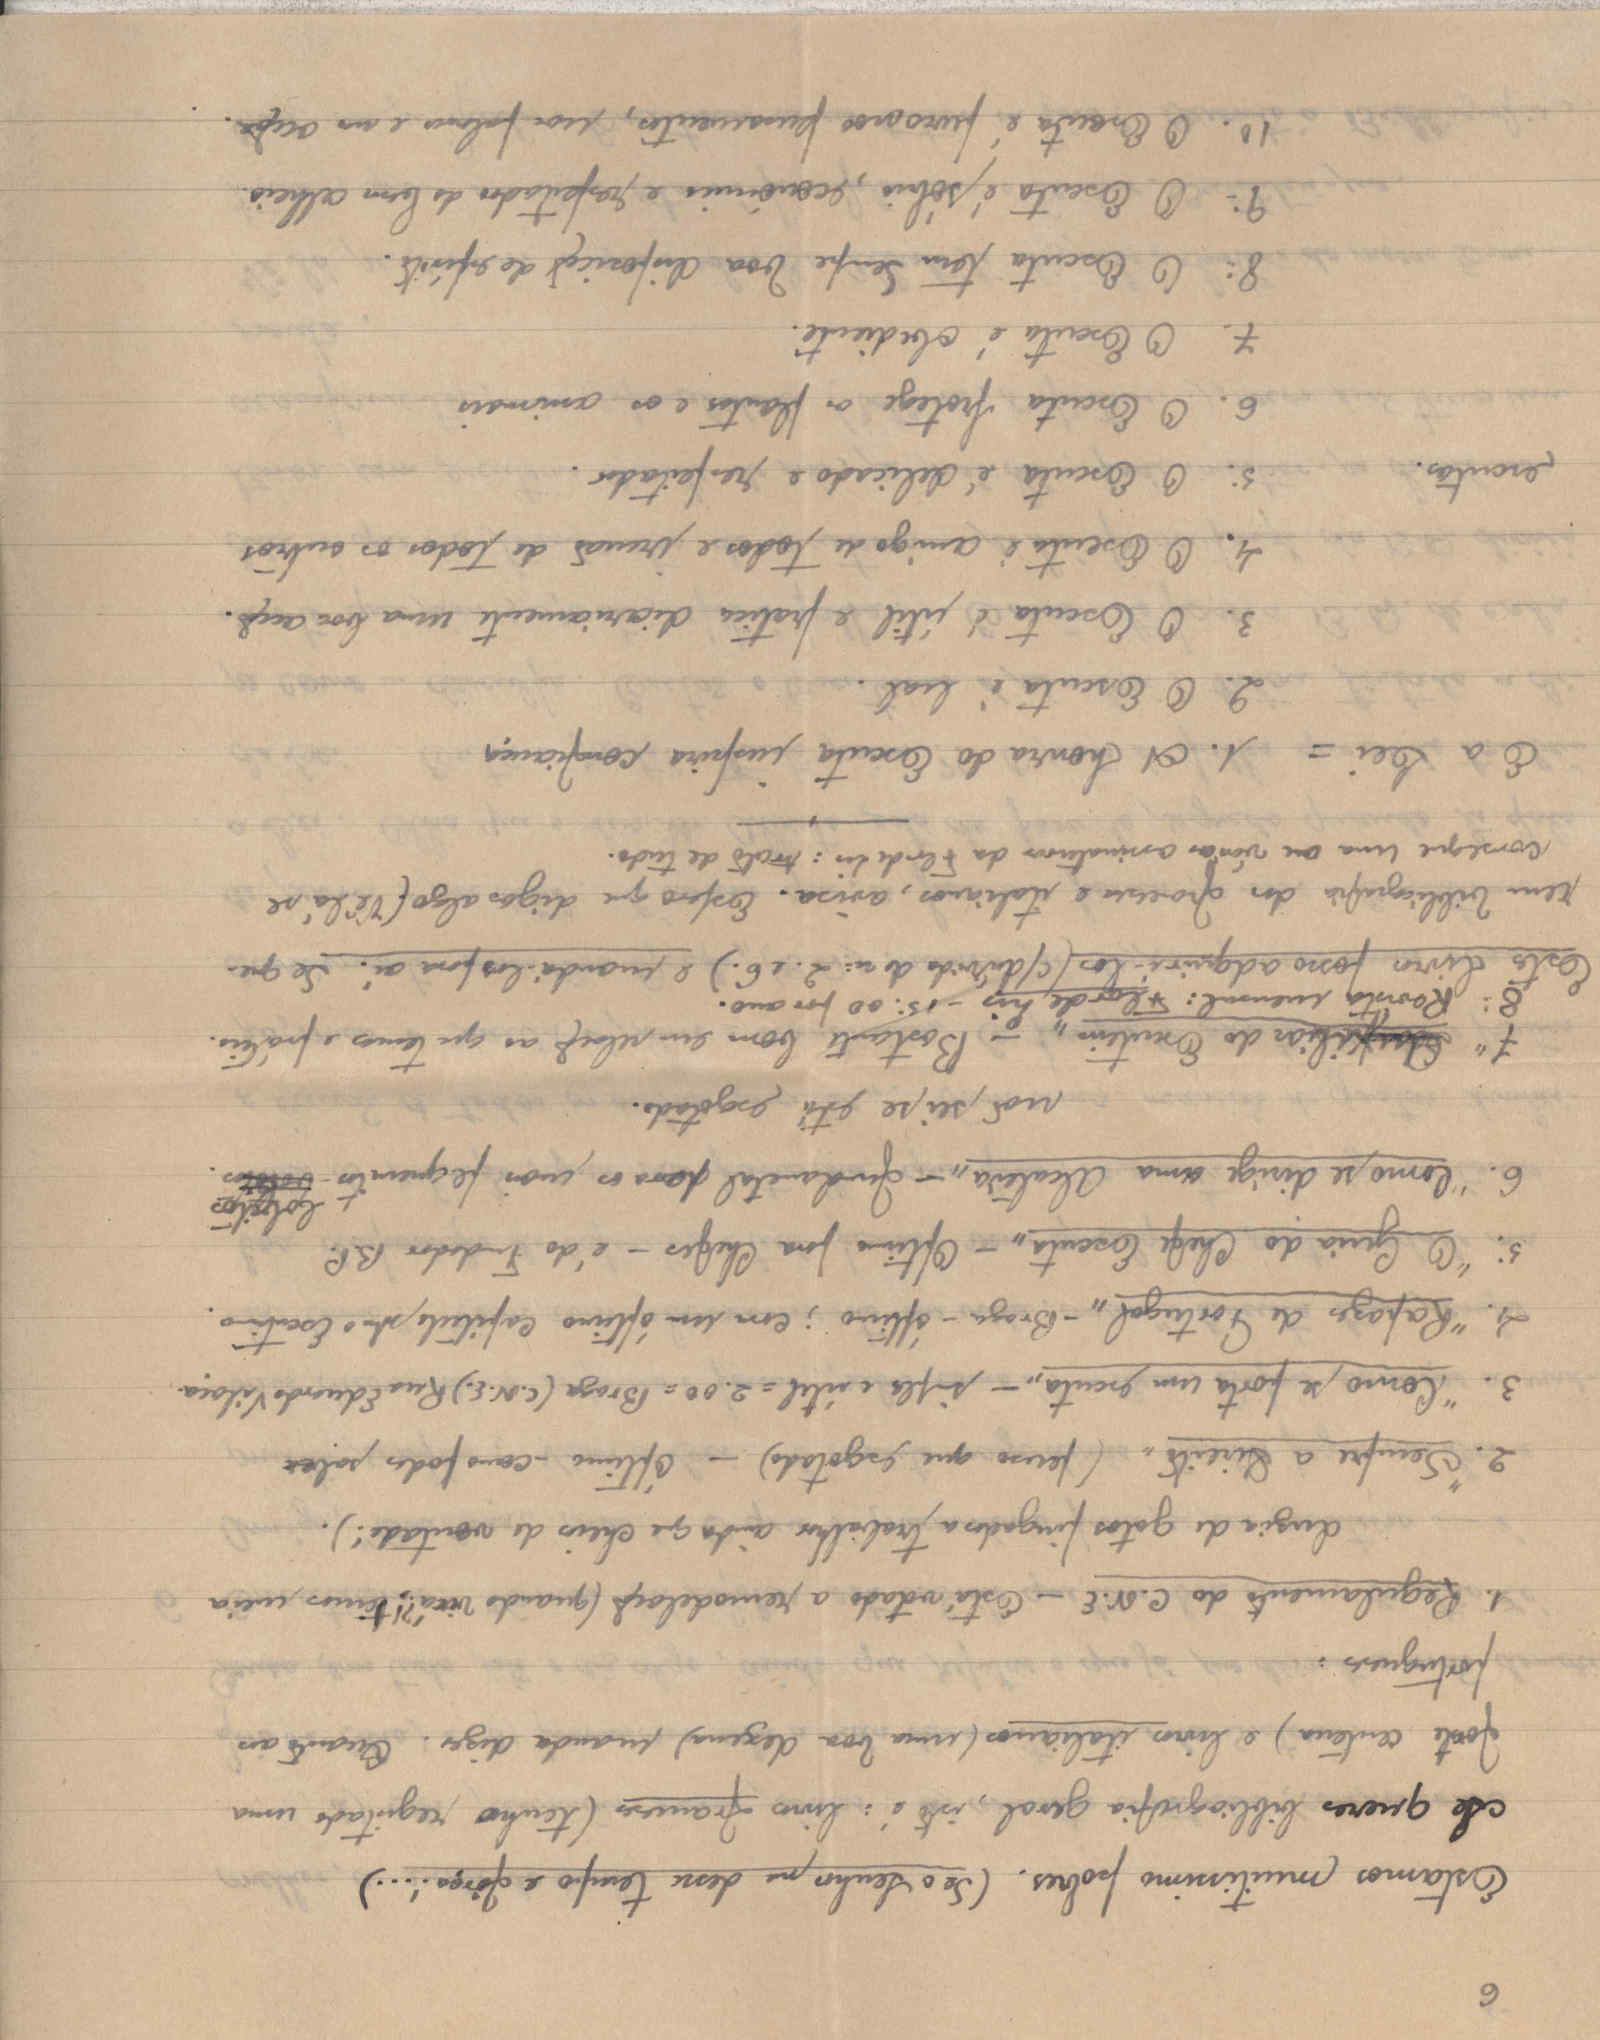 6
Estamos muitissimo pobres. (Se o Senhor me desse tempo e fôrça!...)
Se queres bibliografia geral, isto é: livros franceses (tenho registado uma
forte centena) e livros italianos (uma boa dezena) manda dizer. Quanto aos
portugueses:
1. Regulamento do C.N.E – Está votado a remodelação (quando virá?! temos meia
duzia de gatos pingados a trabalhar ainda que cheios de vontade!).
2. "Sempre a Direito" (penso que esgotado) – Óptimo – como podes saber
3. "Como se porta um escuta" – simples e útil = 2.00 = Braga (C.N.E.) Rua Eduardo Vilaça.
4. "Rapazes de Portugal" – Braga – óptimo; com um óptimo capítulo sôbre o Escutismo.
5. "O Guia do Chefe Escuta" – Óptimo para Chefes – é do Fundador B.P.
6. "Como se dirige uma Alcateia" – fundamental para os mais pequenitos – Lobitos.
não sei se está esgotado.
7 "Auxiliar do Escutismo" – Bastante bom em relação ao que temos e prático.
8. Revista mensal: Flor de Lis – 15.00 por ano.
Estes livros posso adquiri-los (c/ dúvida do n.º 2. e 6.) e mandá-los para aí. Se que-
rem bibliografia dos franceses e italianos, avisa. Espero que digas algo (Vê lá se
consegue uma ou várias assinaturas da Flor de Lis: trato de tudo.
E a Lei = 1. A Honra do Escuta inspira confiança
2. O Escuta é leal.
3. O Escuta é útil e pratica diariamente uma boa acção.
4. O Escuta é amigo de todos e irmão de todos os outros
escutas.
5. O Escuta é delicado e respeitador.
6. O Escuta protege as plantas e os animais
7. O Escuta é obediente.
8. O Escuta tem sempre boa disposição de espírito.
9. O Escuta é sóbrio, económico e respeitador do bem alheio.
10. O Escuta é puro nos pensamentos, nas palavras e nas acções.